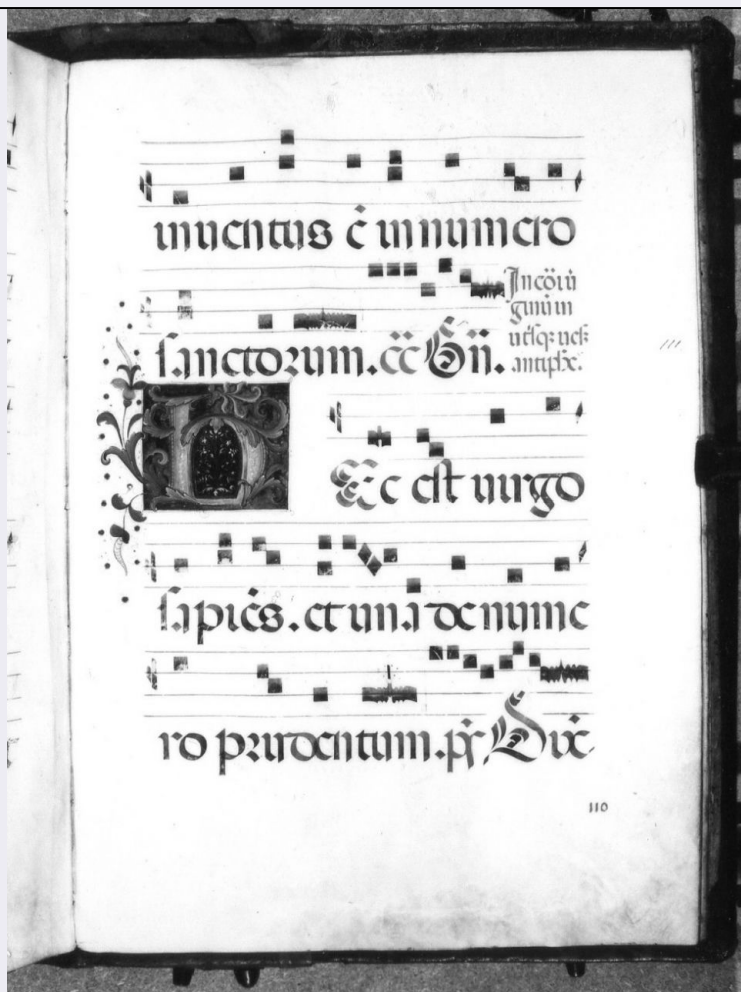 inuentus ē in numero
sanctorum. 
In cōi uir
ginū in
utˢqꝫ uesꝑ
antiphē.
Ec est uirgo
sapiēs. et una de nume
ro prudentum. pˢ Dix̄
110